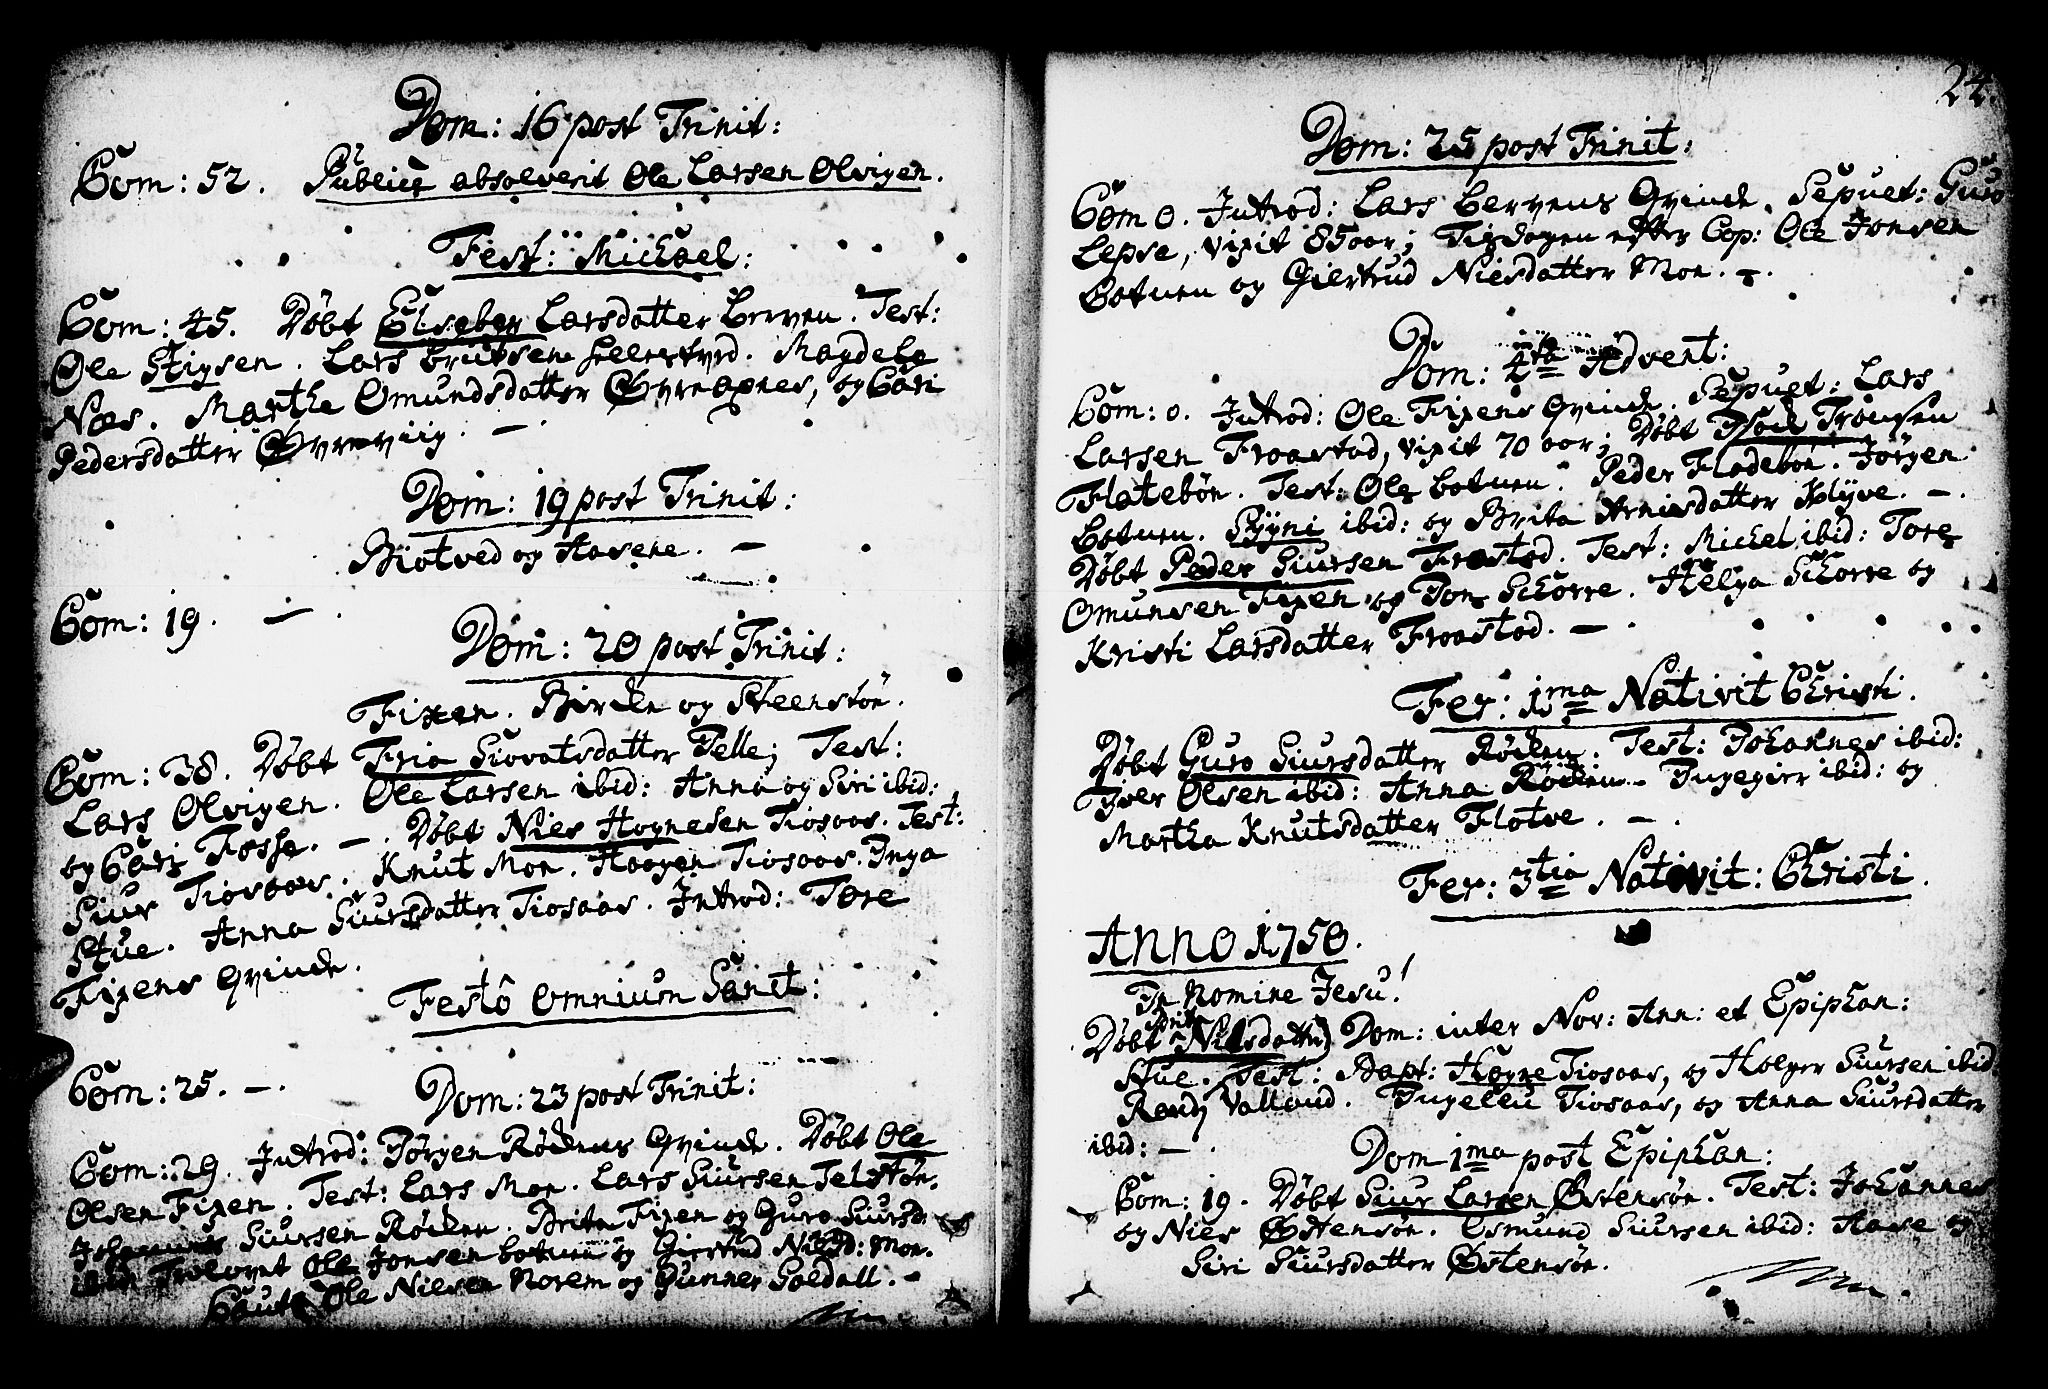 Dom: 16 post Trinit:
Com: 52. Publicè absolverit Ole Larsen Olvigen.
Fest: Michael:
Com: 45. Døbt Elseber Larsdatter Berven. Test:
Ole Stigsen. Lars
Næs. Marthe Omundsdatter Øyreaxnes, og Cari
Pedersdatter Øvreviig. —
Dom: 19 post Trinit:
Biotved og Aasene. —
Com: 19. —
Dom: 20 post Trinit:
Fixen. Birden og Steenstøn.
Com: 38. Døbt Fria Siovatsdatter Telle; Test:
Lars Olvigen. Ole Larsen ibid: Anna og Siri ibid:
og Cari Fosse. — . Døbt Niels Hognesen Tiosaas. Test:
Siur Tiosaas. Knut Mon. Haagen Tiosaas. Inga
Stue. Anna Siursdatter Tiosaas. Introd: Tore
Fixens Qvinde.
Festô Omnium Sanct:
Com: 25. — .
Dom: 23 post Trinit:
Com: 29. Introd: Jørgen Rødens Qvinde. Døbt Ole
Olsen Fixen. Test: Lars Mon. Lars Siursen Telstøn.
Johannes Siursen Røden. Brita Fixen og Guro Siursd:
ibid: Trolovet Ole Jonsen Botnen og Giertrud Nielsd: Mon.
Caut: Ole Nielsen Norem og Gunner Soldall. —
24.
Dom: 25 post Trinit:
Com 0. Introd: Lars Bervens Qvinde. Sepult: Guro
Lepse, vixit 85 aar; Tisdagen efter Cop: Ole Jonsen
Botnen og Giertrud Nielsdatter Mon.
Dom: 4ta Advent:
Com: 0. Introd: Ole Fixens Qvinde. Sepult: Lars
Larsen Fraastad, vixit 70 aar; Døbt Tronsen
Flatebøn. Test: Ole Botnen. Peder Fladebøn. Jørgen
Botnen. ibid: og Brita Arnisdatter Klyve. — .
Døbt Peder Siursen Frastad. Test: Michel ibid: Tore
Omunsen Fixen og Jon Schorre. Helga Schorre og
Kristi Larsdatter Fraastad. — .
Fer: 1ma Nativit Christi.
Døbt Guro Siursdatter Røden. Test: Johannes ibid:
Iver Olsen ibid: Anna Røden. Ingegier ibid: og
Martha Knutsdatter Flotve. — .
Fer: 3tia Nativit: Christi.
ANNO 1750.
In Nomine Jesu!
Døbt Brita Nilsdatter) Dom: inter Nov: Ann: et Epiphan:
Stue. Test: Bapt: Høgne Tiosaas, og Holger Siursen ibid
Randj Valland. Ingeleu Tiosaas, og Anna Siursdatter
ibid: — .
Dom 1ma post Epiphan:
Com: 19. Døbt Siur Larsen Østensøn. Test: Johannes
og Niels Østensøn. Osmund Siursen ibid: Aase og
Siri Siursdatter Østensøn.